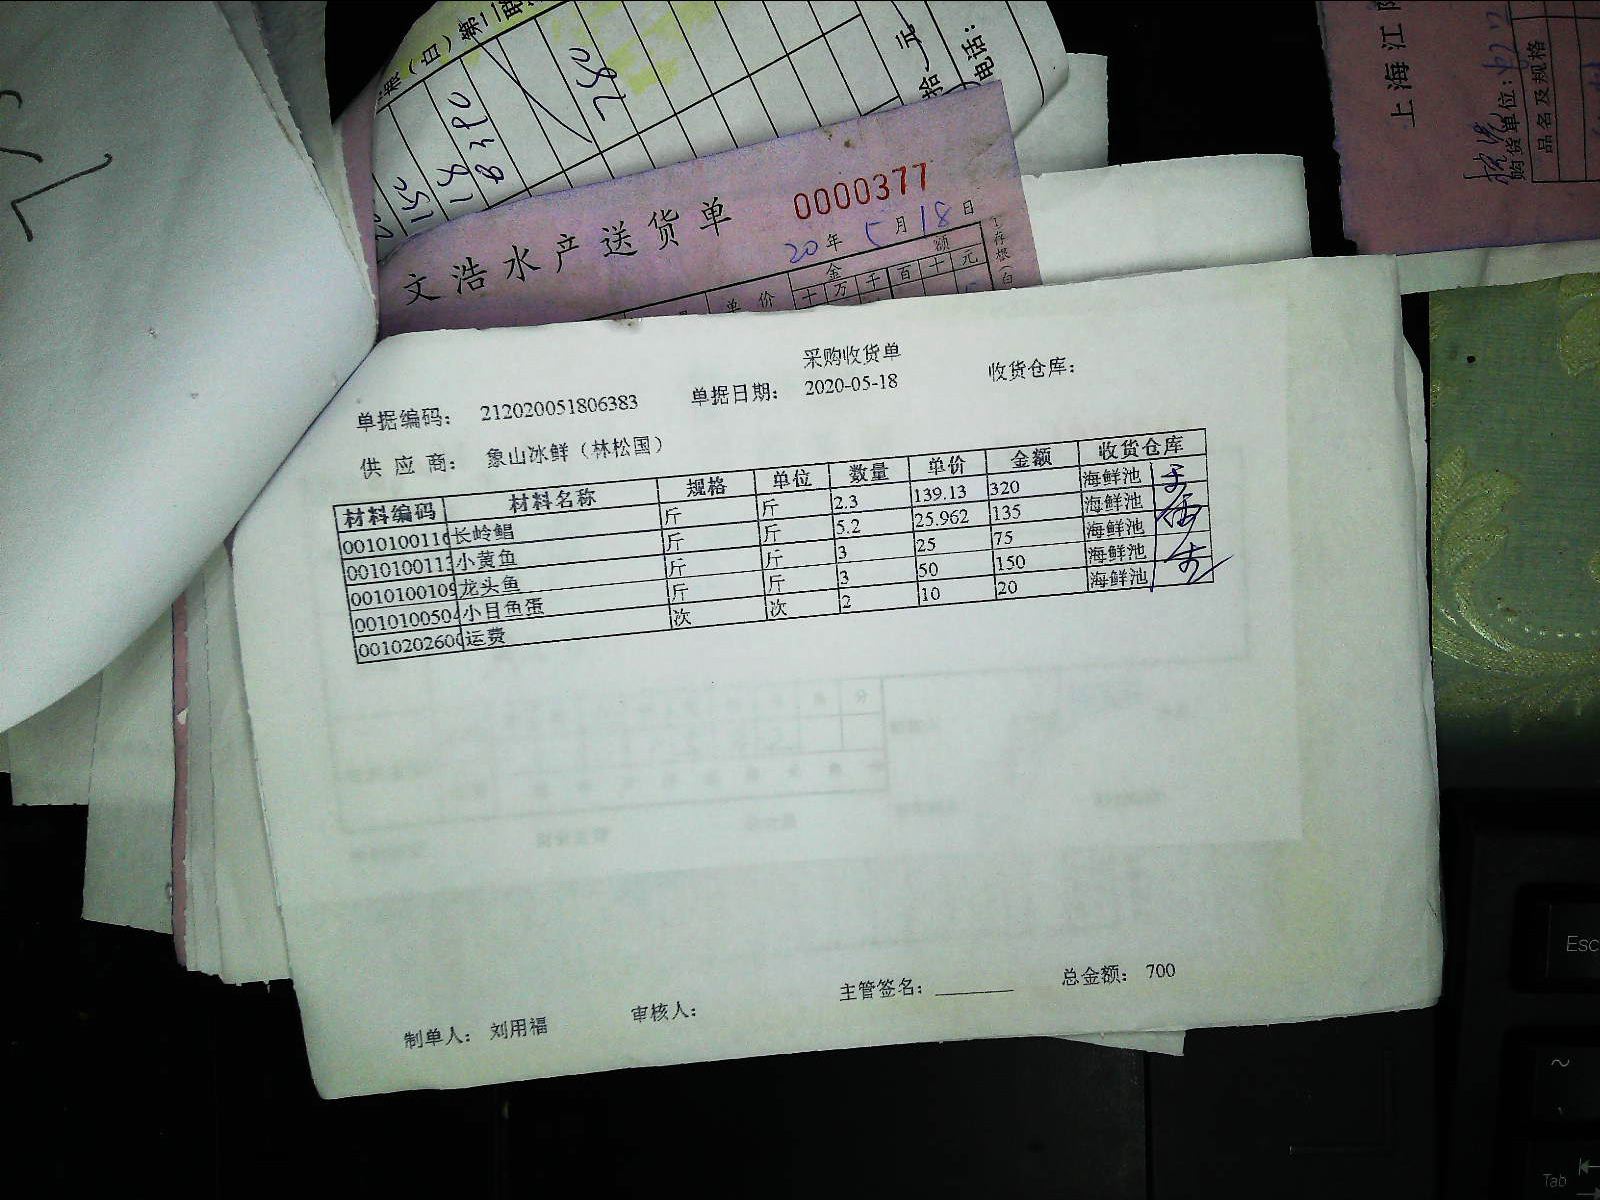 白）第二联
拾 元
电话：
上海江
购货单位：
品名及规格
文浩水产送货单 0000377
20年 5月 18日
单价 金额
十 万 千 百 十 元
采购收货单
单据编码： 212020051806383 单据日期： 2020-05-18 收货仓库：
供 应 商： 象山冰鲜（林松国）
材料编码 材料名称 规格 单位 数量 单价 金额 收货仓库
001010011 长岭鲳 斤 斤 2.3 139.13 320 海鲜池
001010011 小黄鱼 斤 斤 5.2 25.962 135 海鲜池
0010100109 龙头鱼 斤 斤 3 25 75 海鲜池
001010050 小目鱼蛋 斤 斤 3 50 150 海鲜池
001020260 运费 次 次 2 10 20 海鲜池
制单人： 刘用福 审核人： 主管签名： 总金额： 700
Esc
~
Tab